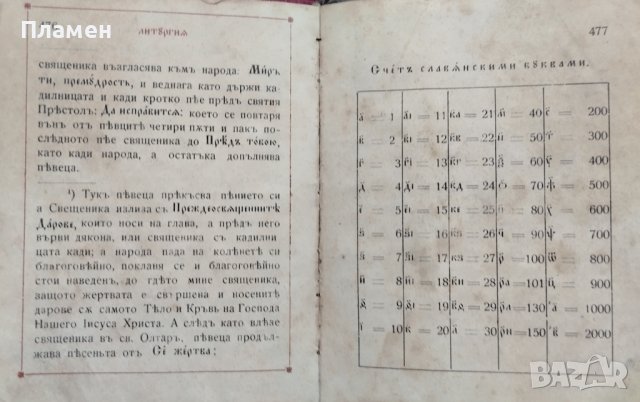 Пламен
476
ЛИТꙊРГИѦ
священика възгласява къмъ народа: Ми́ръ
ти, премꙋдрость, и веднага като държи ка-
дилницата и кади кротко пѣе прѣдъ святия
Прѣстолъ: Да исправитсѧ: което се повтаря
вънъ отъ пѣвцитѣ четири пѫти и пакъ по-
слѣдното пѣе священика до Прⷣедъ то́бою,
като кади народа, а остатъка допълнява
пѣвеца.
¹) Тукъ пѣвеца прѣкъсва пѣнието си
а Свещеника излиза съ Преждеосвѧщеннитѣ
Дарове, които носи на глава, а прѣдъ него
върви дякона, или священика съ кадилни-
цата кади; а народа пада на колѣнетѣ си
благоговѣйно, покланя се и благоговѣйно
стои наведенъ, до гдѣто мине священика,
защото жертвата е свършена и носенитѣ
дарове сѫ самото Тѣло и Кръвь на Господа
Нашего Іисуса Христа. А слѣдъ като влѣзе
священика въ св. Олтаръ, пѣвеца продъл-
жава пѣсеньта отъ Се́ же́ртва;
477
Счетъ славѧнскими бꙋквами.
а҃ = 1 а҃і = 11 к҃а = 21 м҃ = 40 с҃ = 200
в҃ = 2 в҃і = 12 к҃в = 22 н҃ = 50 т҃ = 300
г҃ = 3 г҃і = 13 к҃г = 23 ѯ҃ = 60 ꙋ҃ = 400
д҃ = 4 д҃і = 14 к҃д = 24 о҃ = 70 ф҃ = 500
є҃ = 5 є҃і = 15 к҃є = 25 п҃ = 80 х҃ = 600
ѕ҃ = 6 ѕ҃і = 16 к҃ѕ = 26 ч҃ = 90 ѱ҃ = 700
з҃ = 7 з҃і = 17 к҃з = 27 р҃ = 100 ѿ҃ = 800
и҃ = 8 и҃і = 18 к҃и = 28 р҃а = 101 ц҃ = 900
ѳ҃ = 9 ѳ҃і = 19 к҃ѳ = 29 р҃л = 130 ҂а҃ = 1000
і҃ = 10 к҃ = 20 л҃ = 30 р҃н = 150 ҂в҃ = 2000
BAZAR
bg